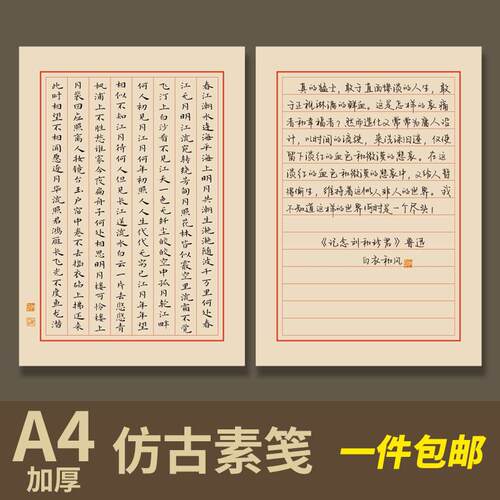 春江潮水连海平海上明月共潮生滟滟随波千万里何处春
江无月明江流宛转绕芳甸月照花林皆似霰空里流霜不觉
飞汀上白沙看不见江天一色无纤尘皎皎空中孤月轮江畔
何人初见月江月何年初照人人生代代无穷已江月年年望
相似不知江月待何人但见长江送流水白云一片去悠悠青
枫浦上不胜愁谁家今夜扁舟子何处相思明月楼可怜楼上
月裴回应照离人妆镜台玉户帘中卷不去捣衣砧上拂还来
此时相望不相闻愿逐月华流照君鸿雁长飞光不度鱼龙潜
真的猛士，敢于直面惨淡的人生，敢
于正视淋漓的鲜血。这是怎样的哀痛
者和幸福者？然而造化又常常为庸人设
计，以时间的流驶，来洗涤旧迹，仅使
留下淡红的血色和微漠的悲哀。在这
淡红的血色和微漠的悲哀中，又给人暂
得偷生，维持着这似人非人的世界。我
不知道这样的世界何时是一个尽头！
《记念刘和珍君》鲁迅
白衣和风
A4
加厚
仿古素笺
一件包邮